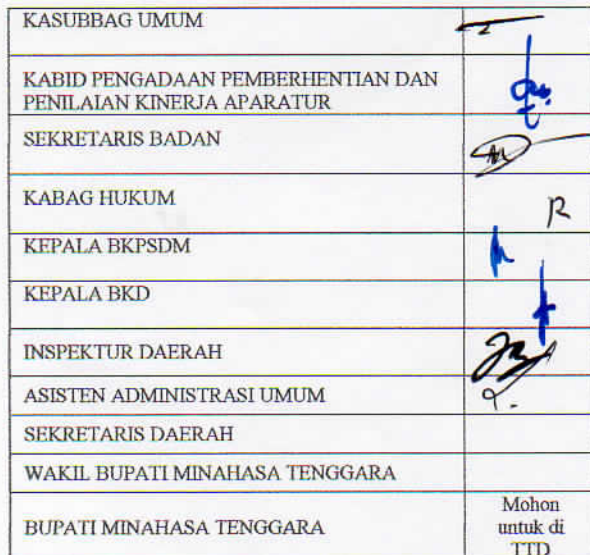 KASUBBAG UMUM
KABID PENGADAAN PEMBERHENTIAN DAN
PENILAIAN KINERJA APARATUR
SEKRETARIS BADAN
KABAG HUKUM
KEPALA BKPSDM
KEPALA BKD
INSPEKTUR DAERAH
ASISTEN ADMINISTRASI UMUM
SEKRETARIS DAERAH
WAKIL BUPATI MINAHASA TENGGARA
BUPATI MINAHASA TENGGARA
Mohon
untuk di
TTD